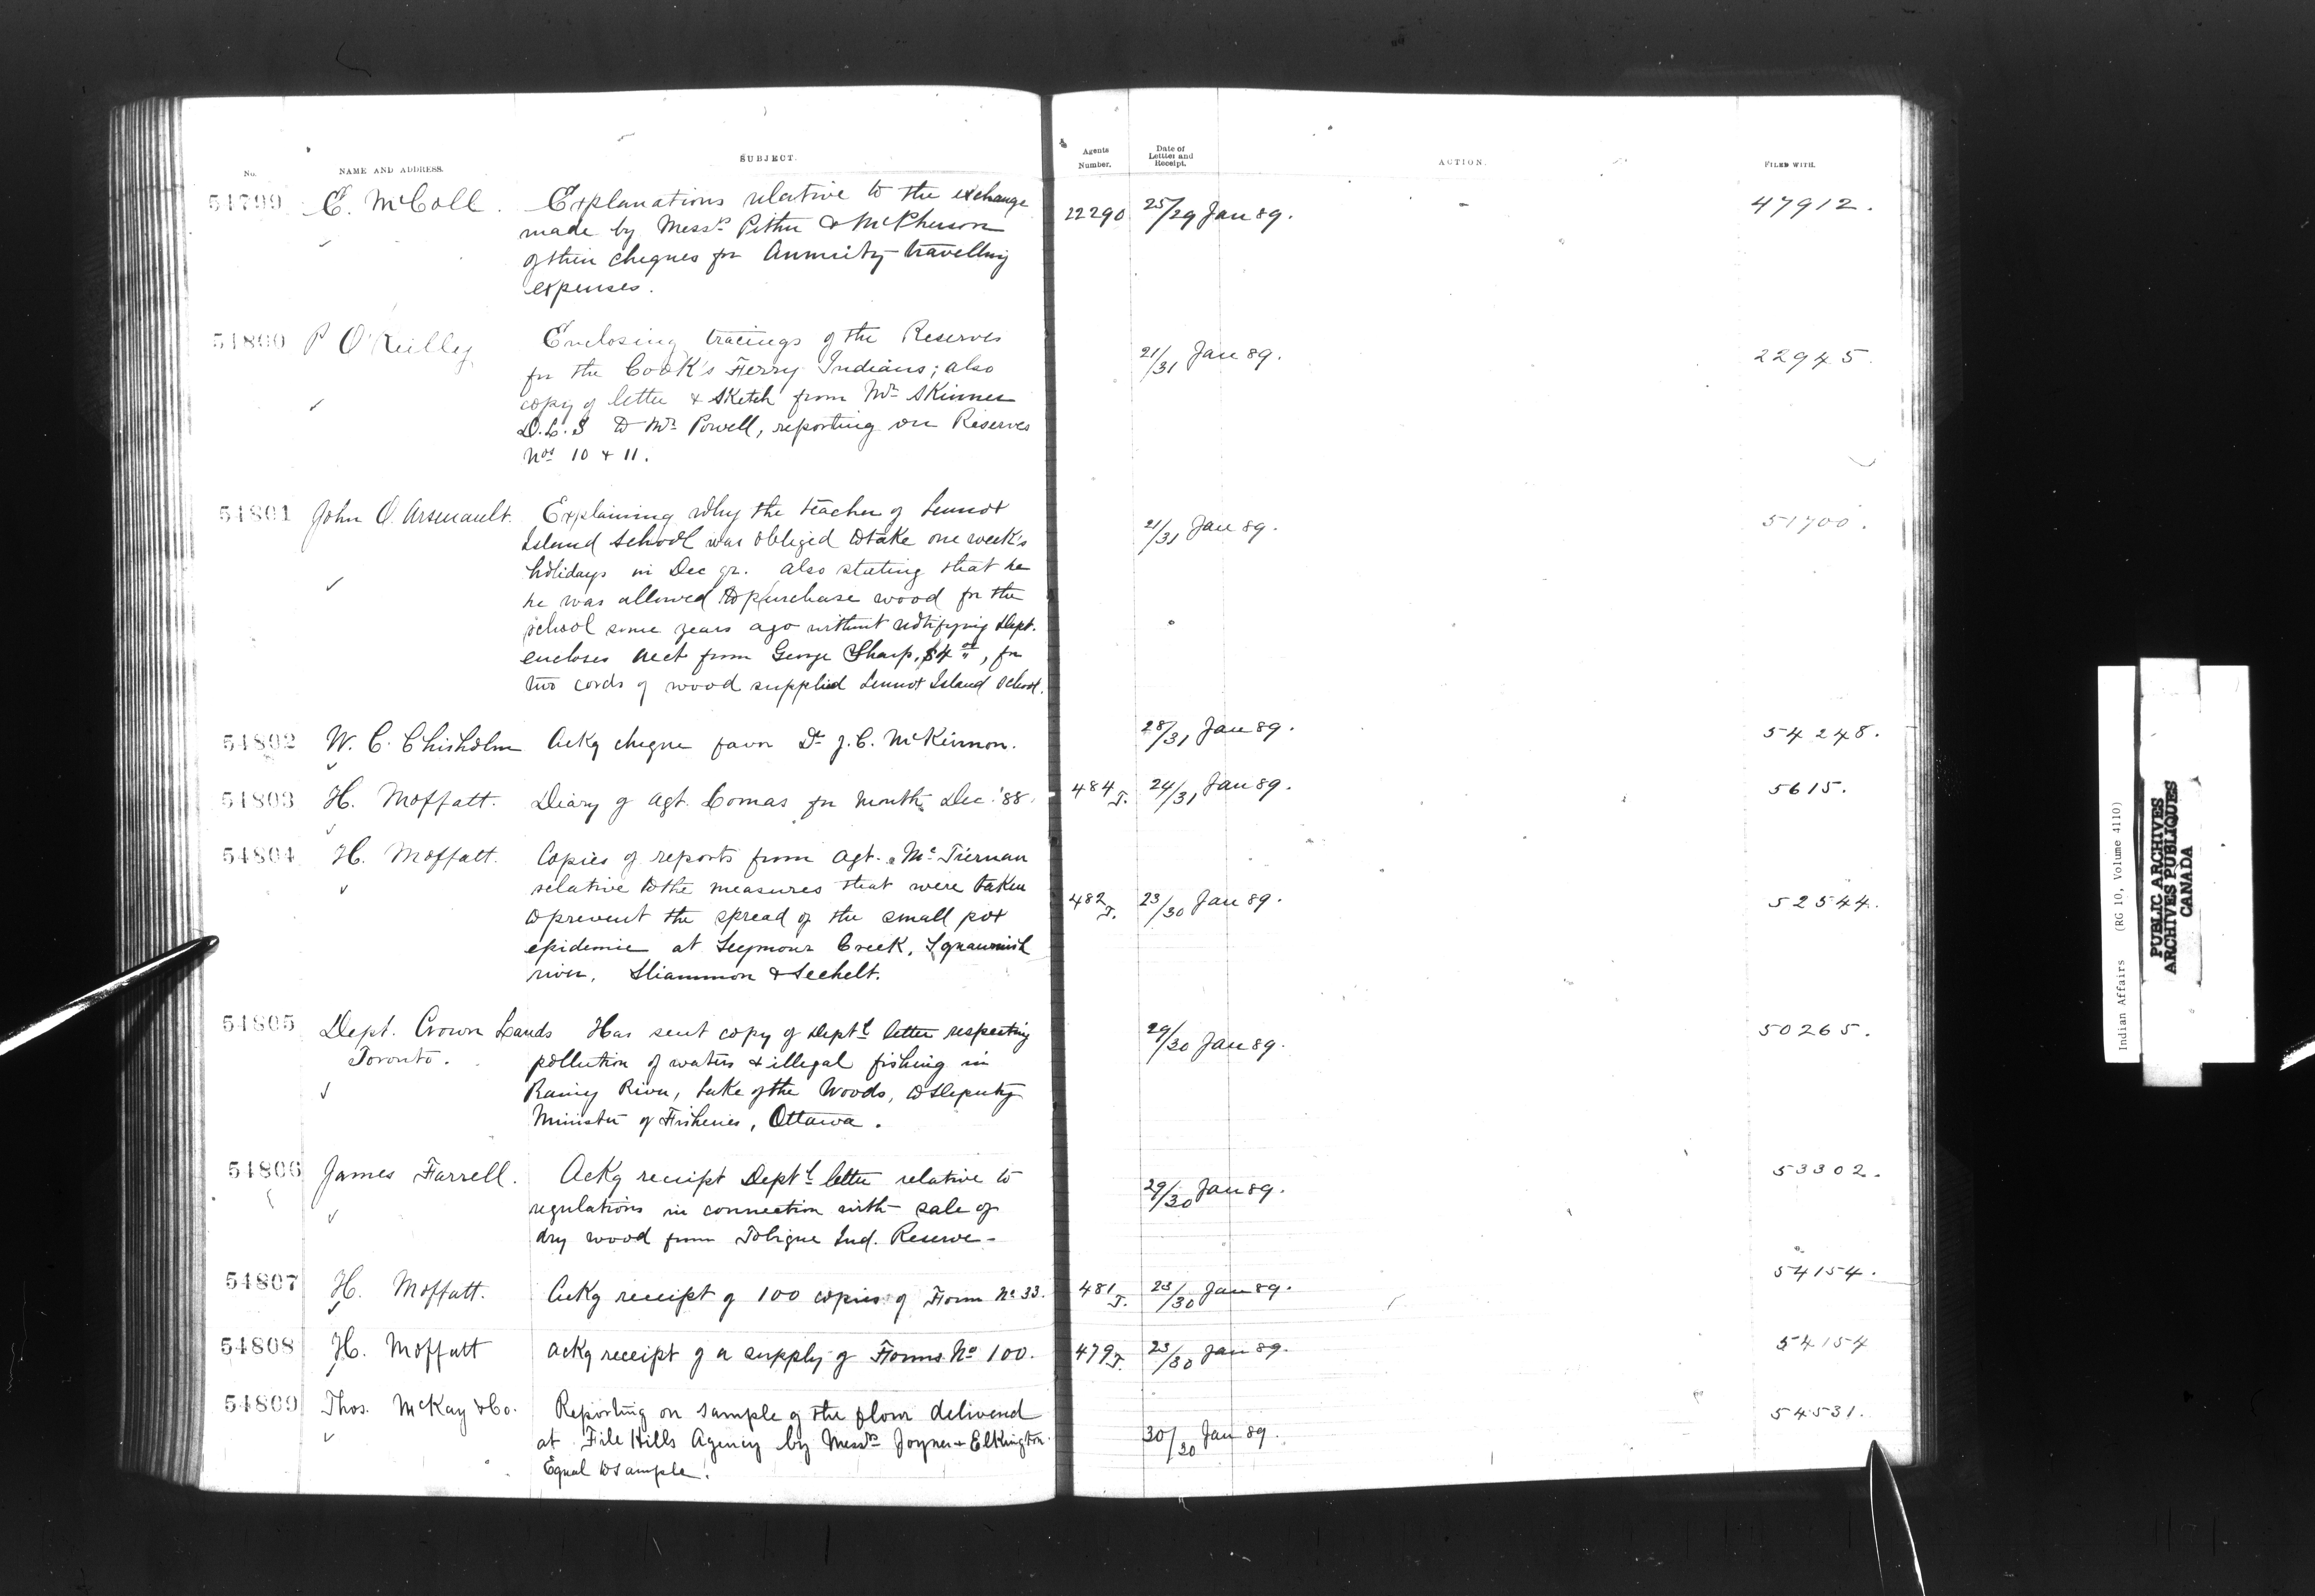 No.
NAME AND ADDRESS.
SUBJECT.
Agents
Number.
Date of
Letter and
Receipt.
ACTION.
FILED WITH.
54799 E. McColl. Explanations relative to the exchange 22290 25/29 Jan 89. 47912.
made by Messrs Pither & McPherson
of their cheques for Annuity travelling
expenses.
54800 P O'Reilly Enclosing tracings of the Reserves 21/31 Jan 89. 22945.
for the Cook's Ferry Indians; also
copy of letter & sketch from Mr Skinner
D.L.S to Mr Powell, reporting on Reserves
Nos 10 & 11.
54801 John O. Arsenault. Explaining why the teacher of Lennox 21/31 Jan 89. 51700.
Island School was obliged to take one week's
holidays in Dec. also stating that he
he was allowed to purchase wood for the
school some years ago without notifying Dept.
encloses acct from George Sharp, $4.00, for
two cords of wood supplied Lennox Island School.
54802 W. C. Chisholm Ackg cheque favor Dr J. C. McKinnon. 28/31 Jan 89. 54248.
54803 H. Moffatt. Diary of Agt. Lomas for month Dec. '88. 484 J. 24/31 Jan 89. 5615.
54804 H. Moffatt. Copies of reports from Agt. McTiernan
relative to the measures that were taken 482 J. 23/30 Jan 89. 52544.
to prevent the spread of the small pox
epidemic at Seymour Creek, Squawmish
river, Sliammon & Sechelt.
54805 Dept. Crown Lands Has sent copy of Deptl letter respecting 29/30 Jan 89. 50265.
Toronto. pollution of waters & illegal fishing in
Rainy River, Lake of the Woods, to Deputy
Minister of Fisheries, Ottawa.
54806 James Farrell. Ackg receipt Deptl letter relative to 29/30 Jan 89. 53302.
regulations in connection with sale of
dry wood from Tobique Ind. Reserve.
54807 H. Moffatt. Ackg receipt of 100 copies of Form No 33. 481 J. 23/30 Jan 89. 54154.
54808 H. Moffatt Ackg receipt of a supply of Forms No 100. 479 J. 23/30 Jan 89. 54154
54809 Thos. McKay & Co. Reporting on sample of the flour delivered 54531.
at File Hills Agency by Messrs Joyner & Elkington. 30/30 Jan 89.
Equal to sample.
Indian Affairs (RG 10, Volume 4110)
PUBLIC ARCHIVES
ARCHIVES PUBLIQUES
CANADA